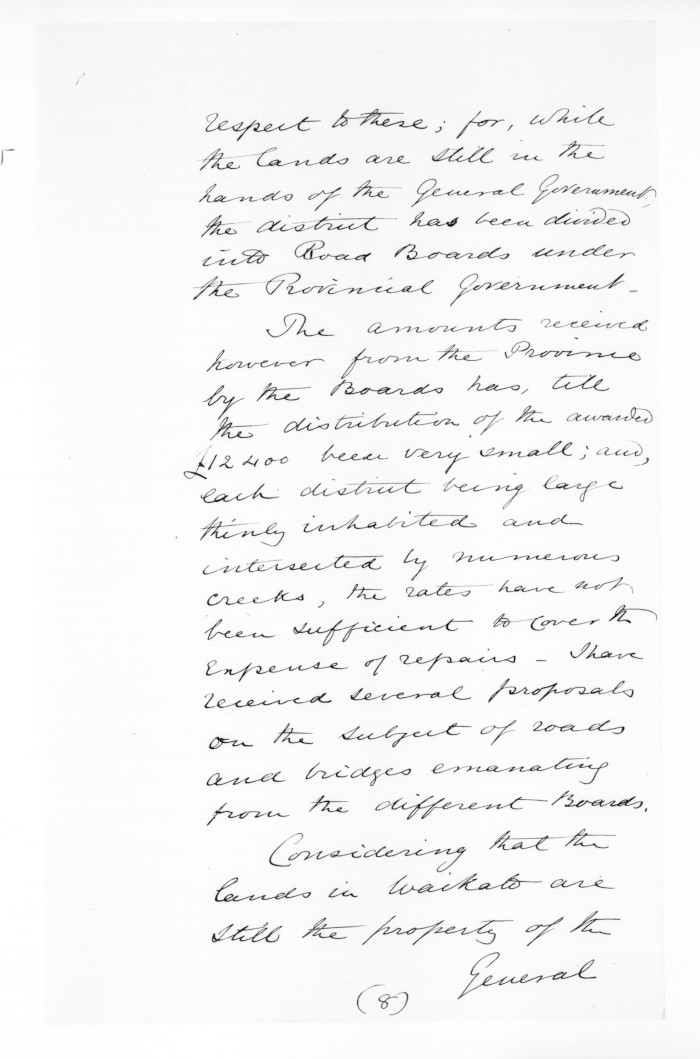 respect to these; for, while
the lands are still in the
hands of the General Government,
the district has been divided
into Road Boards under
the Provincial Government -
The amounts received
however from the Province
by the Boards has, till
the distribution of the awarded
£12400 been very small; and,
each district being large
thinly inhabited and
intersected by numerous
creeks, the rates have not
been sufficient to cover the
expense of repairs - I have
received several proposals
on the subject of roads
and bridges emanating
from the different Boards.
Considering that the
lands in Waikato are
still the property of the
General
(8)